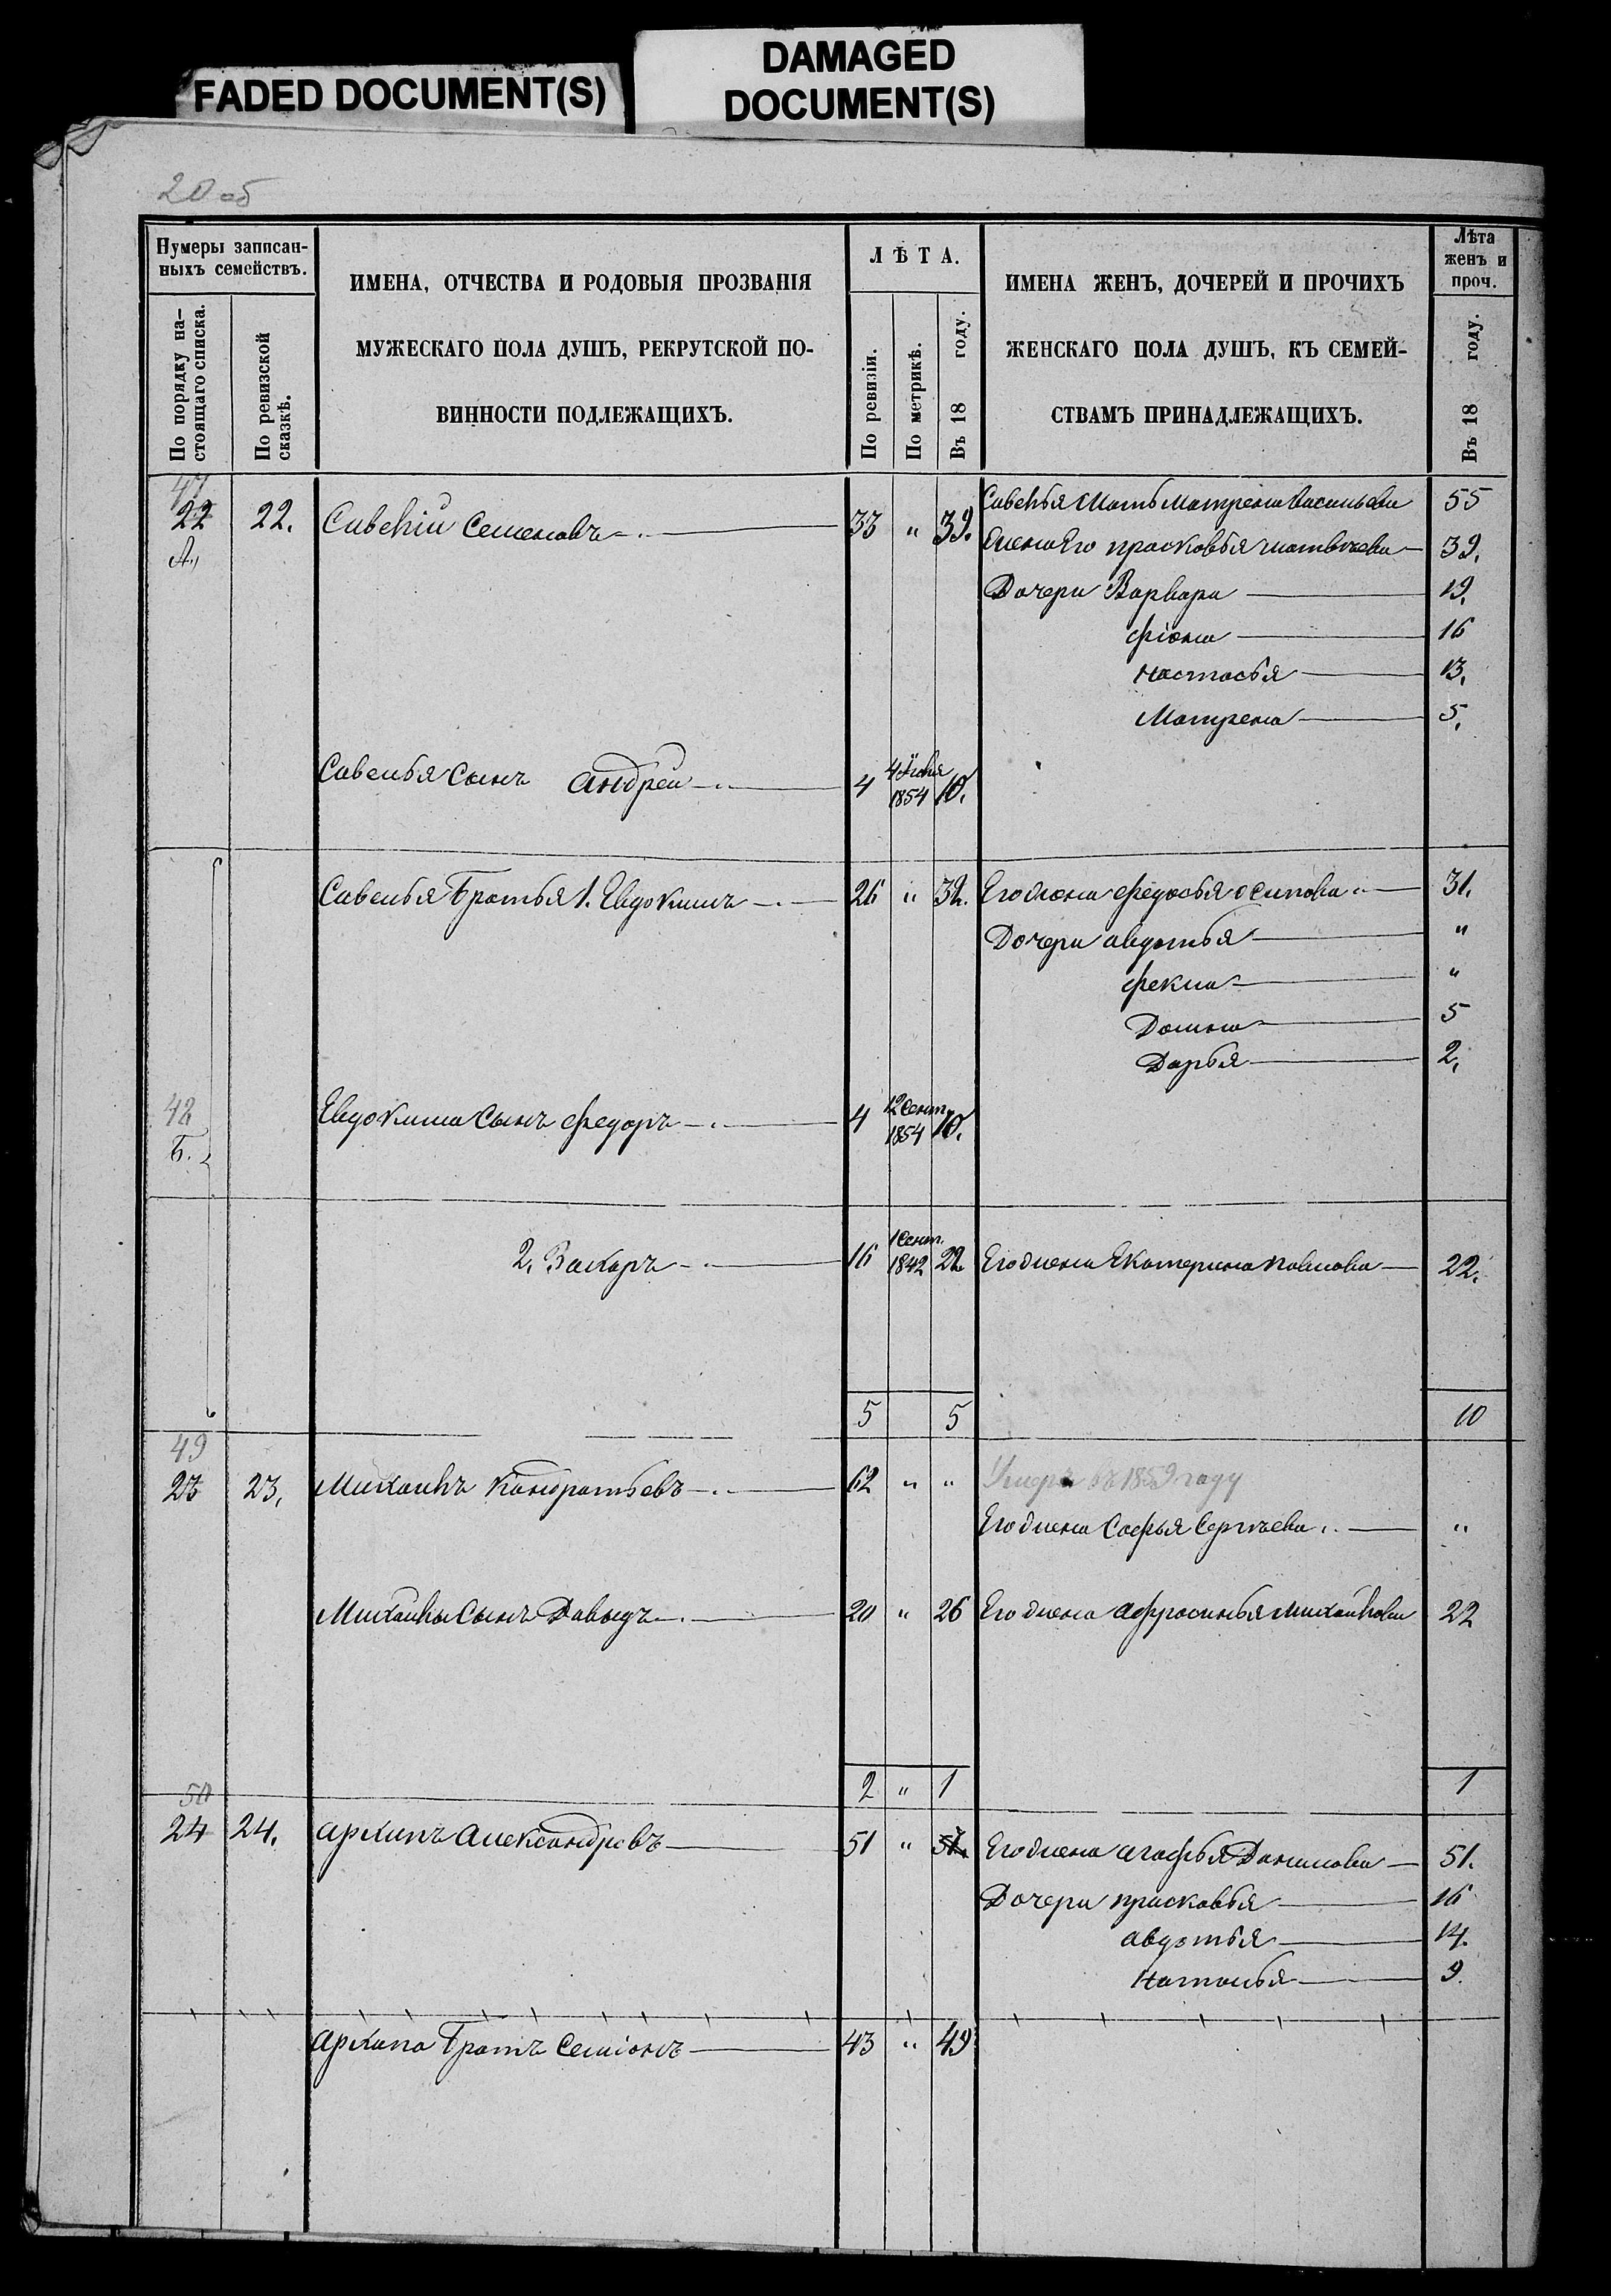 FADED DOCUMENT(S)
DAMAGED
DOCUMENT(S)
20 об
Нумеры записан-
ныхъ семействъ.
По порядку на-
стоящаго списка.
По ревизской
сказкѣ.
ИМЕНА, ОТЧЕСТВА И РОДОВЫЯ ПРОЗВАНІЯ
МУЖЕСКАГО ПОЛА ДУШЪ, РЕКРУТСКОЙ ПО-
ВИННОСТИ ПОДЛЕЖАЩИХЪ.
ЛѢТА.
По ревизіи.
По метрикѣ.
Въ 18 году.
ИМЕНА ЖЕНЪ, ДОЧЕРЕЙ И ПРОЧИХЪ
ЖЕНСКАГО ПОЛА ДУШЪ, КЪ СЕМЕЙ-
СТВАМЪ ПРИНАДЛЕЖАЩИХЪ.
Лѣта
женъ и
проч.
Въ 18 году.
47
22 22. Савелій Семеновъ 33 " 39. Савелья Мать Матрена Васильева 55
А., Жена Его прасковья матвѣева 39.
Дочери Варвара 19.
фіона 16
настасья 13.
Матрена 5.
Савелья Сынъ андрей 4 4 1854 10.
Савелья Братья 1. Евдокимъ 26 " 32. Его жена федосья осипова 31.
Дочери авдотья "
фекла "
Домна 5
Дарья 2.
48
Б. Евдокима Сынъ федоръ 4 12 Сент. 1854 10.
2. Захаръ 16 1 Сент. 1842 22. Его жена Екатерина павлова 22.
5 5 10
49
23 23. Михаилъ Кандратьевъ 62 " " Умеръ въ 1859 году
Его жена Софья Сергѣева "
Михаилы Сынъ Давыдъ 20 " 26 Его жена афросинья михайлова 22
2 " 1 1
50
24 24. архипъ александровъ 51 " 57. Его жена агафья Данилова 51.
Дочери прасковья 16
авдотья 14.
наталья 9.
архипа Братъ Семіонъ 43 " 49